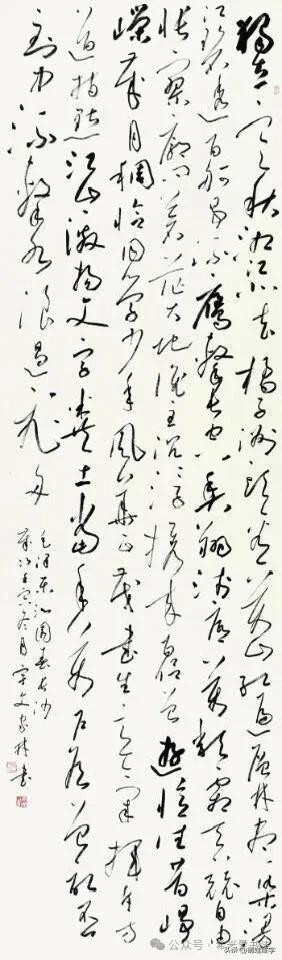 独立寒秋湘江北去橘子洲头看万山红遍层林尽染漫
江碧透百舸争流鹰击长空鱼翔浅底万类霜天竞自由
怅寥廓问苍茫大地谁主沉浮携来百侣曾遊忆往昔峥
嵘岁月稠恰同学少年风华正茂书生意气挥斥方
遒指点江山激扬文字粪土当年万户侯曾记否
到中流击水浪遏飞舟
毛泽东沁园春长沙
岁次壬寅冬月宇文家林书
公众号
头条